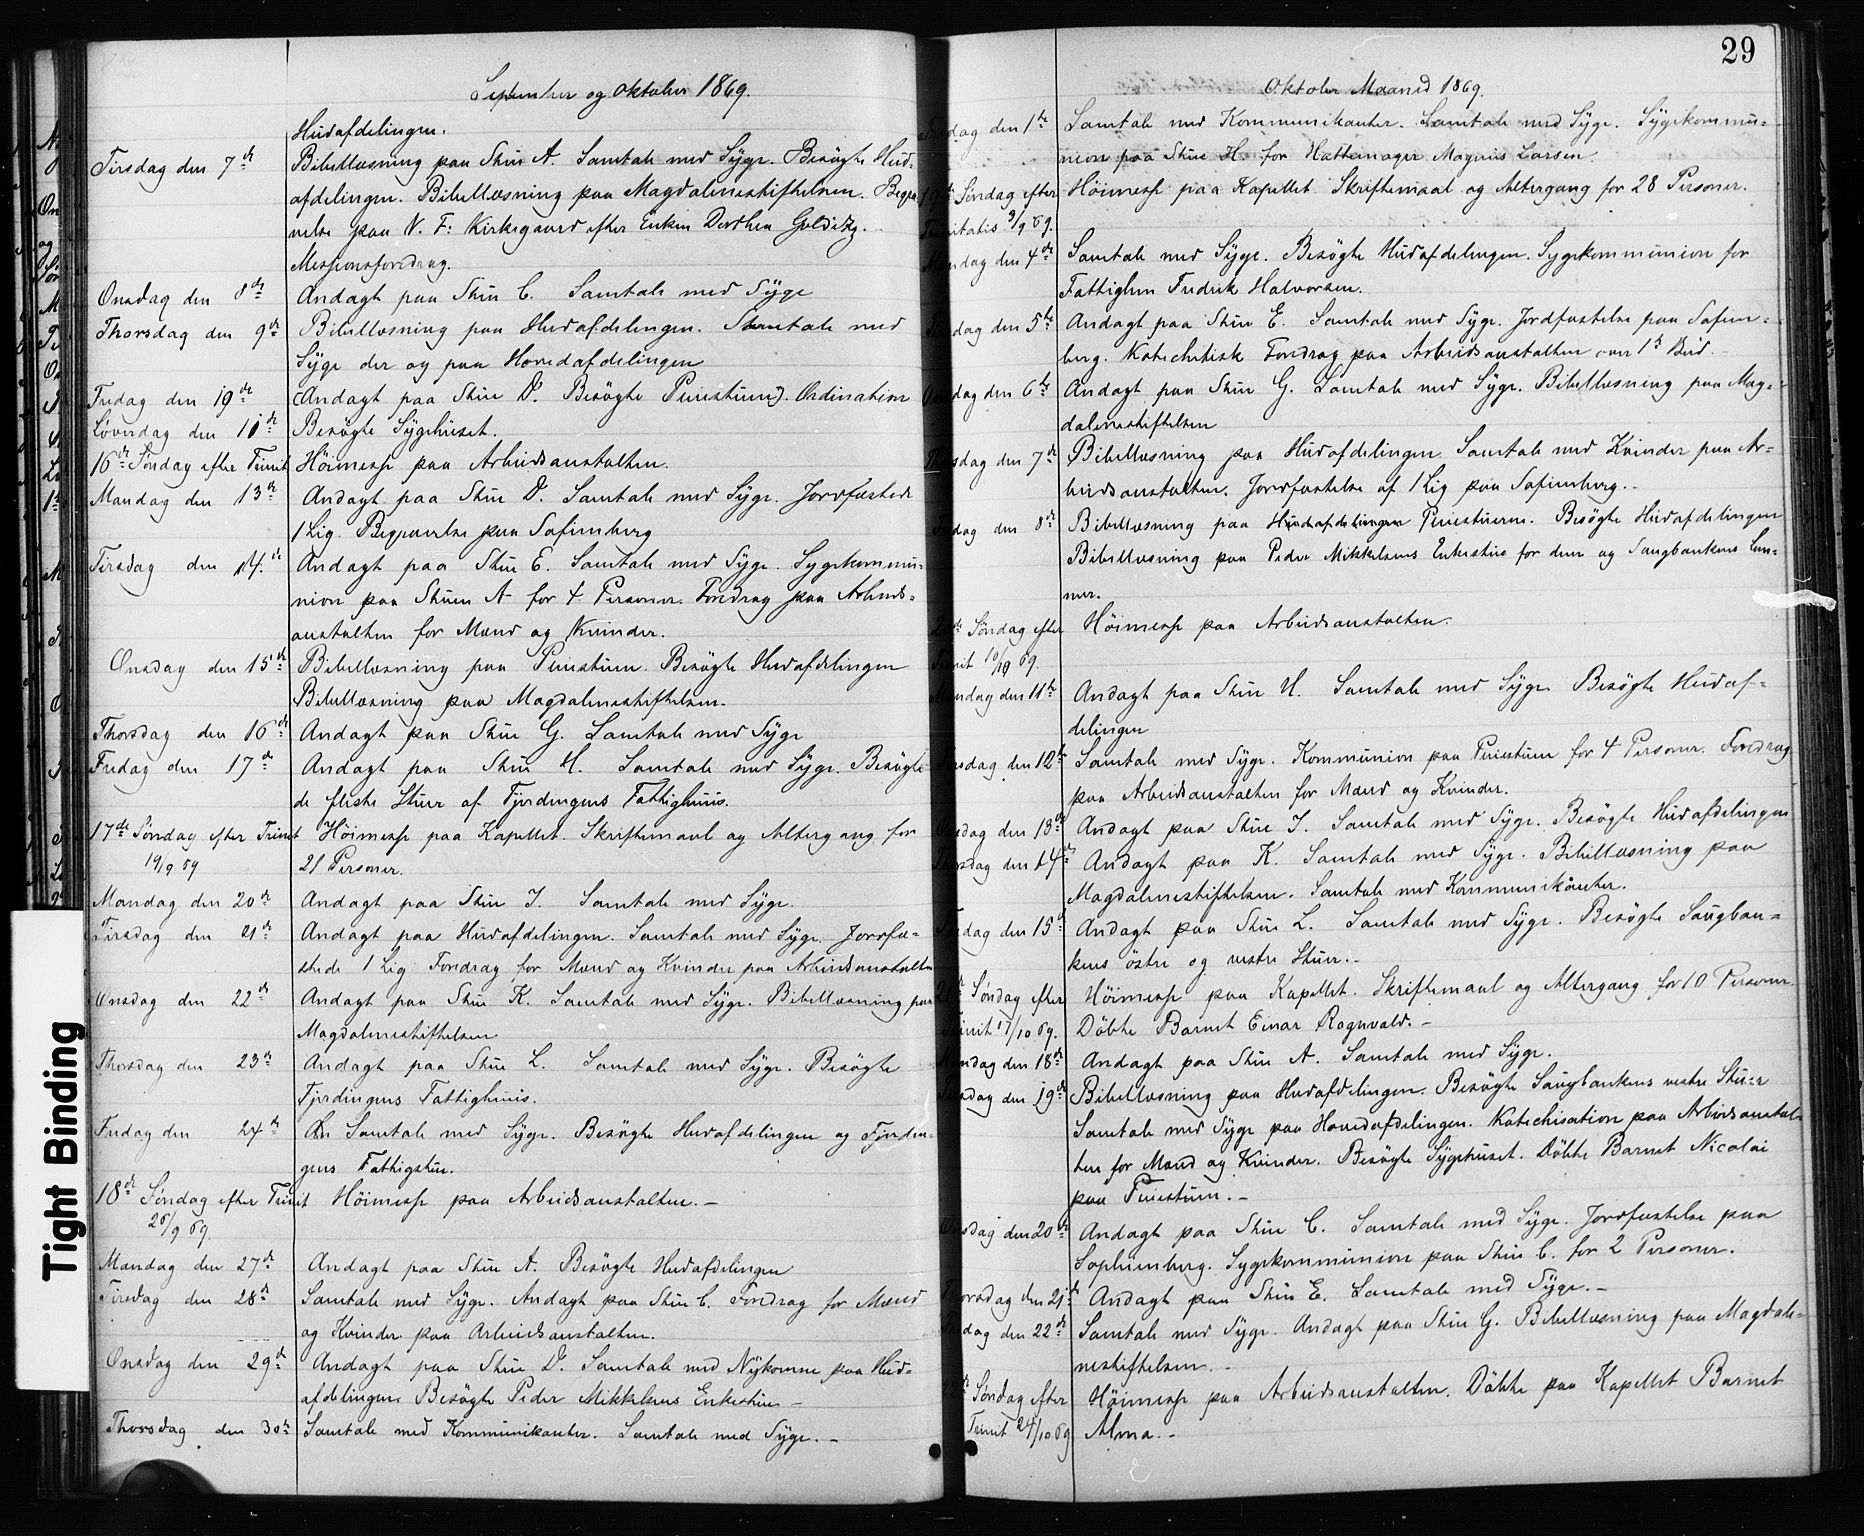 September og Oktober 1869.
Hudafdelingen.
Tirsdag den 7de Bibellæsning paa Stue A. Samtale med Syge. Besøgte Hud-
afdelingen. Bibellæsning paa Magdalenestiftelsen. Begra-
velse paa N. F: Kirkegaard efter Enken Dorthea Golditz.
Missionsforedrag.
Onsdag den 8de Andagt paa Stue C. Samtale med Syge
Thorsdag den 9de Bibellæsning paa Hudafdelingen. Samtale med
Syge der og paa Hovedafdelingen
Fredag den 10de (Andagt paa Stue D. Besøgte Pleiestuen). Ordination
Løverdag den 11te Besøgte Sygehuset.
16de Søndag efter Trinit Höimesse paa Arbeidsanstalten.
Mandag den 13de Andagt paa Stue D. Samtale med Syge. Jordfæstede
1 Lig. Begravelse paa Sofienberg
Tirsdag den 14de Andagt paa Stue E. Samtale med Syge. Sygekommu-
nion paa Stuen A for 4 Personer. Foredrag paa Arbeids-
anstalten for Mænd og Kvinder.
Onsdag den 15de Bibellæsning paa Pleiestuen. Besøgte Hudafdelingen
Bibellæsning paa Magdalenestiftelsen.
Thorsdag den 16de Andagt paa Stue G. Samtale med Syge
Fredag den 17de Andagt paa Stue H. Samtale med Syge. Besøgte
de fleste Stuer af Fjerdingens Fattighuus.
17de Søndag efter Trinit Höimesse paa Kapellet. Skriftemaal og Altergang for
19/9 59 21 Personer.
Mandag den 20de Andagt paa Stue I. Samtale med Syge.
Tirsdag den 21de Andagt paa Hudafdelingen. Samtale med Syge. Jordfæ-
stede 1 Lig Foredrag for Mænd og Kvinder paa Arbeidsanstalten
Onsdag den 22de Andagt paa Stue K. Samtale med Syge. Bibellæsning paa
Magdalenestiftelsen
Thorsdag den 23de Andagt paa Stue L. Samtale med Syge. Besøgte
Fjerdingens Fattighuus.
Fredag den 24de Samtale med Syge. Besøgte Hudafdelingen og Fjerdin-
gens Fattigstue.
18de Søndag efter Trinit Höimesse paa Arbeidsanstalten. –
26/9 69.
Mandag den 27de Andagt paa Stue A. Besøgte Hudafdelingen
Tirsdag den 28de Samtale med Syge. Andagt paa Stue C. Foredrag for Mænd
og Kvinder paa Arbeidsanstalten.
Onsdag den 29de Andagt paa Stue D. Samtale med Nykomne paa Hud-
afdelingen Besøgte Peder Mikkelsens Enkestue –
Thorsdag den 30te Samtale med Kommunikanter. Samtale med Syge. –
29
Oktober Maaned 1869.
Fredag den 1te Samtale med Kommunikanter. Samtale med Syge. Sygekommu-
nion paa Stue H. for Hattemager Magnus Larsen.
19de Søndag efter Höimesse paa Kapellet. Skriftemaal og Altergang for 28 Personer.
Trinitatis 3/9 69.
Mandag den 4de Samtale med Syge. Besøgte Hudafdelingen. Sygekommunion for
Fattiglem Fredrik Halvorsen.
Tirsdag den 5te Andagt paa Stue E. Samtale med Syge. Jordfæstelse paa Sofien-
berg. Katechetisk Foredrag paa Arbeidsanstalten over 1ste Bud.
Onsdag den 6te Andagt paa Stue G. Samtale med Syge. Bibellæsning paa Mag-
dalenestiftelsen
Thorsdag den 7de Bibellæsning paa Hudafdelingen Samtale med Kvinder paa Ar-
beidsanstalten. Jordfæstelse af 1 Lig paa Sofienberg. –
Fredag den 8de Bibellæsning paa Hudafdelingen Pleiestuerne. Besøgte Hudafdelingen
Bibellæsning paa Peder Mikkelsens Enkestue for dem og Saugbankens Lem-
mer.
20de Søndag efter Höimesse paa Arbeidsanstalten.
Trinit 10/10 69.
Mandag den 11te Andagt paa Stue H. Samtale med Syge Besøgte Hudaf-
delingen
Tirsdag den 12te Samtale med Syge. Kommunion paa Pleiestuen for 4 Personer. Foredrag
paa Arbeidsanstalten for Mænd og Kvinder.
Onsdag den 13de Andagt paa Stue I. Samtale med Syge. Besøgte Hudafdelingen
Thorsdag den 14de Andagt paa K. Samtale med Syge. Bibellæsning paa
Magdalenestiftelsen. Samtale med Kommunikanter.
Fredag den 15de Andagt paa Stue L. Samtale med Syge. Besøgte Saugban-
kens östre og vestre Stuer. –
21de Søndag efter Höimesse paa Kapellet. Skriftemaal og Altergang for 10 Personer.
Trinit 17/10 69. Döbte Barnet Einar Ragnvald. –
Mandag den 18de Andagt paa Stue A. Samtale med Syge.
Tirsdag den 19de Bibellæsning paa Hudafdelingen. Besøgte Saugbankens vestre Stuer
Samtale med Syge paa Hovedafdelingen. Katechisation paa Arbeidsanstal-
ten for Mænd og Kvinder. Besøgte Sygehuset. Döbte Barnet Nicolai
paa Pleiestuen. –
Onsdag den 20de Andagt paa Stue C. Samtale med Syge. Jordfæstelse paa
Sophienberg. Sygekommunion paa Stue C. for 2 Personer.
Thorsdag den 21de Andagt paa Stue E. Samtale med Syge. –
Fredag den 22de Samtale med Syge. Andagt paa Stue G. Bibellæsning paa Magdale-
nestiftelsen. –
Søndag efter Höimesse paa Arbeidsanstalten. Döbte paa Kapellet Barnet
Trinit 24/10 69 Alma. –
Tight Binding